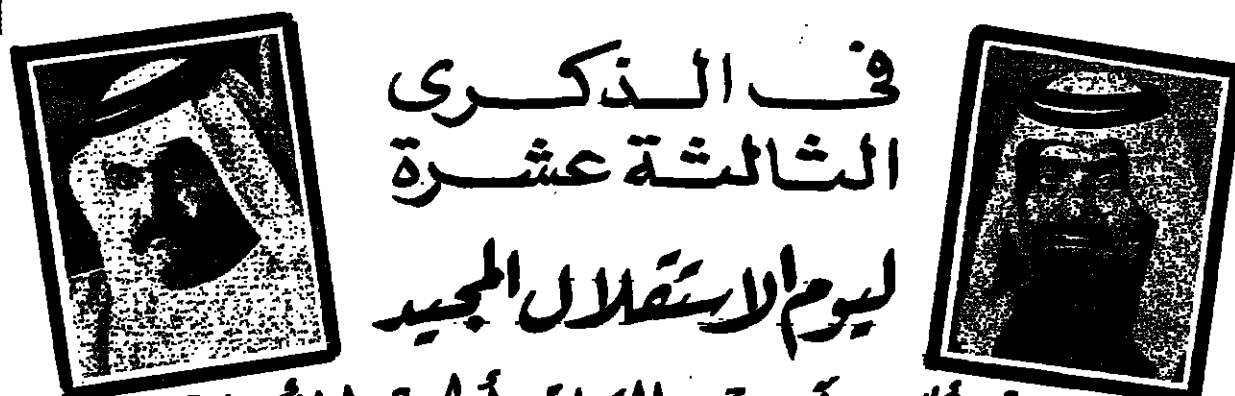 في الذكرى
الثالثة عشرة
ليوم الاستقلال المجيد